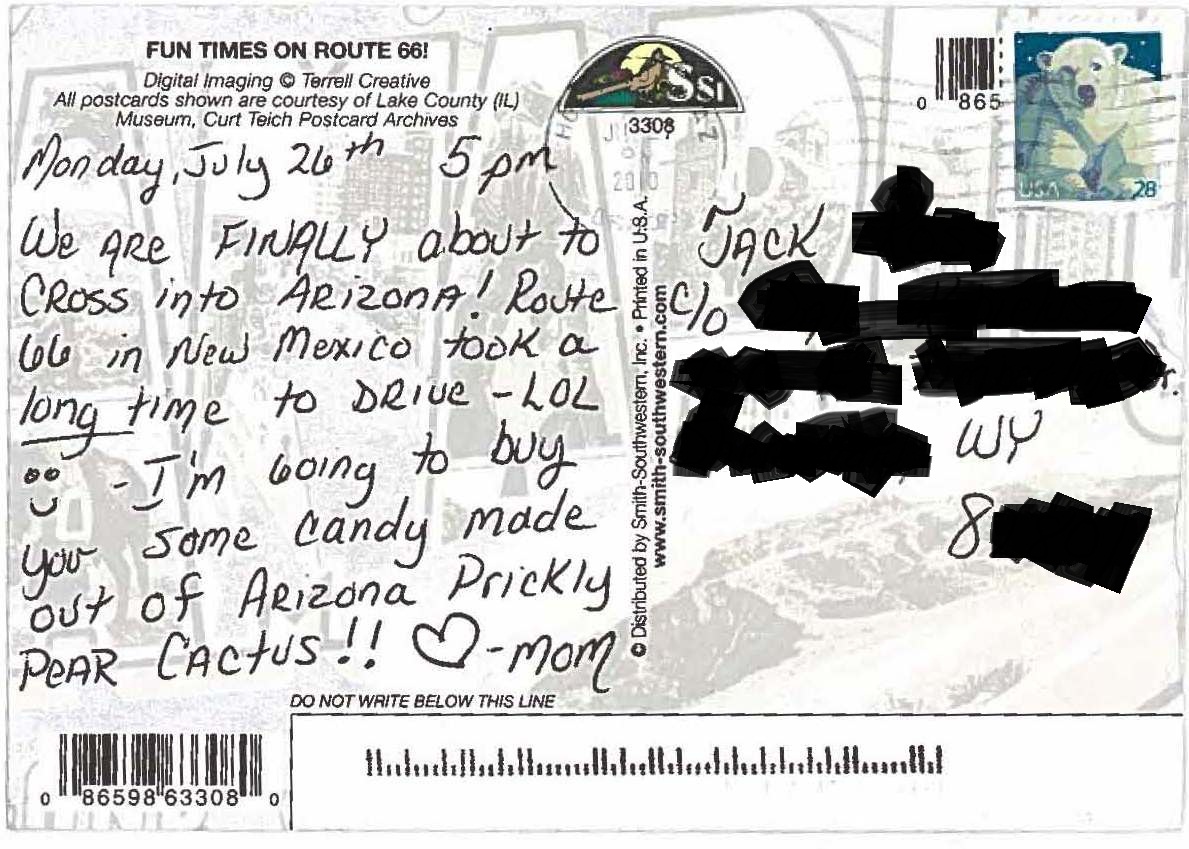 FUN TIMES ON ROUTE 66!
Digital Imaging © Terrell Creative
All postcards shown are courtesy of Lake County (IL)
Museum, Curt Teich Postcard Archives
Monday, July 26th 5pm
We ARE FINALLY about to
CROSS into ARizonA! Route
66 in New Mexico took a
long time to DRive - LOL
- I'm Going to buy
you some candy made
out of ARizona Prickly
PeAR CACtUS!! ♡ - mom
SSI
3308
© Distributed by Smith-Southwestern, Inc. • Printed in U.S.A.
www.smith-southwestern.com
0 865
USA 28
JACK
C/O
WY
8
DO NOT WRITE BELOW THIS LINE
0 86598 63308 0